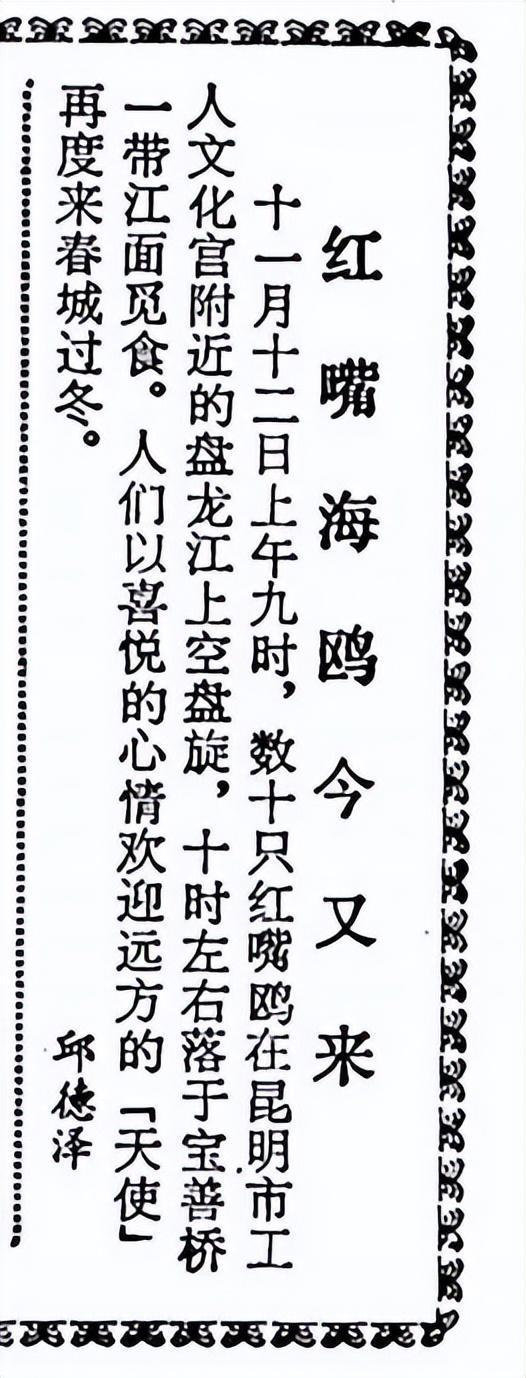 红嘴海鸥今又来
十一月十二日上午九时，数十只红嘴鸥在昆明市工
人文化宫附近的盘龙江上空盘旋，十时左右落于宝善桥
一带江面觅食。人们以喜悦的心情欢迎远方的「天使」
再度来春城过冬。
邱德泽